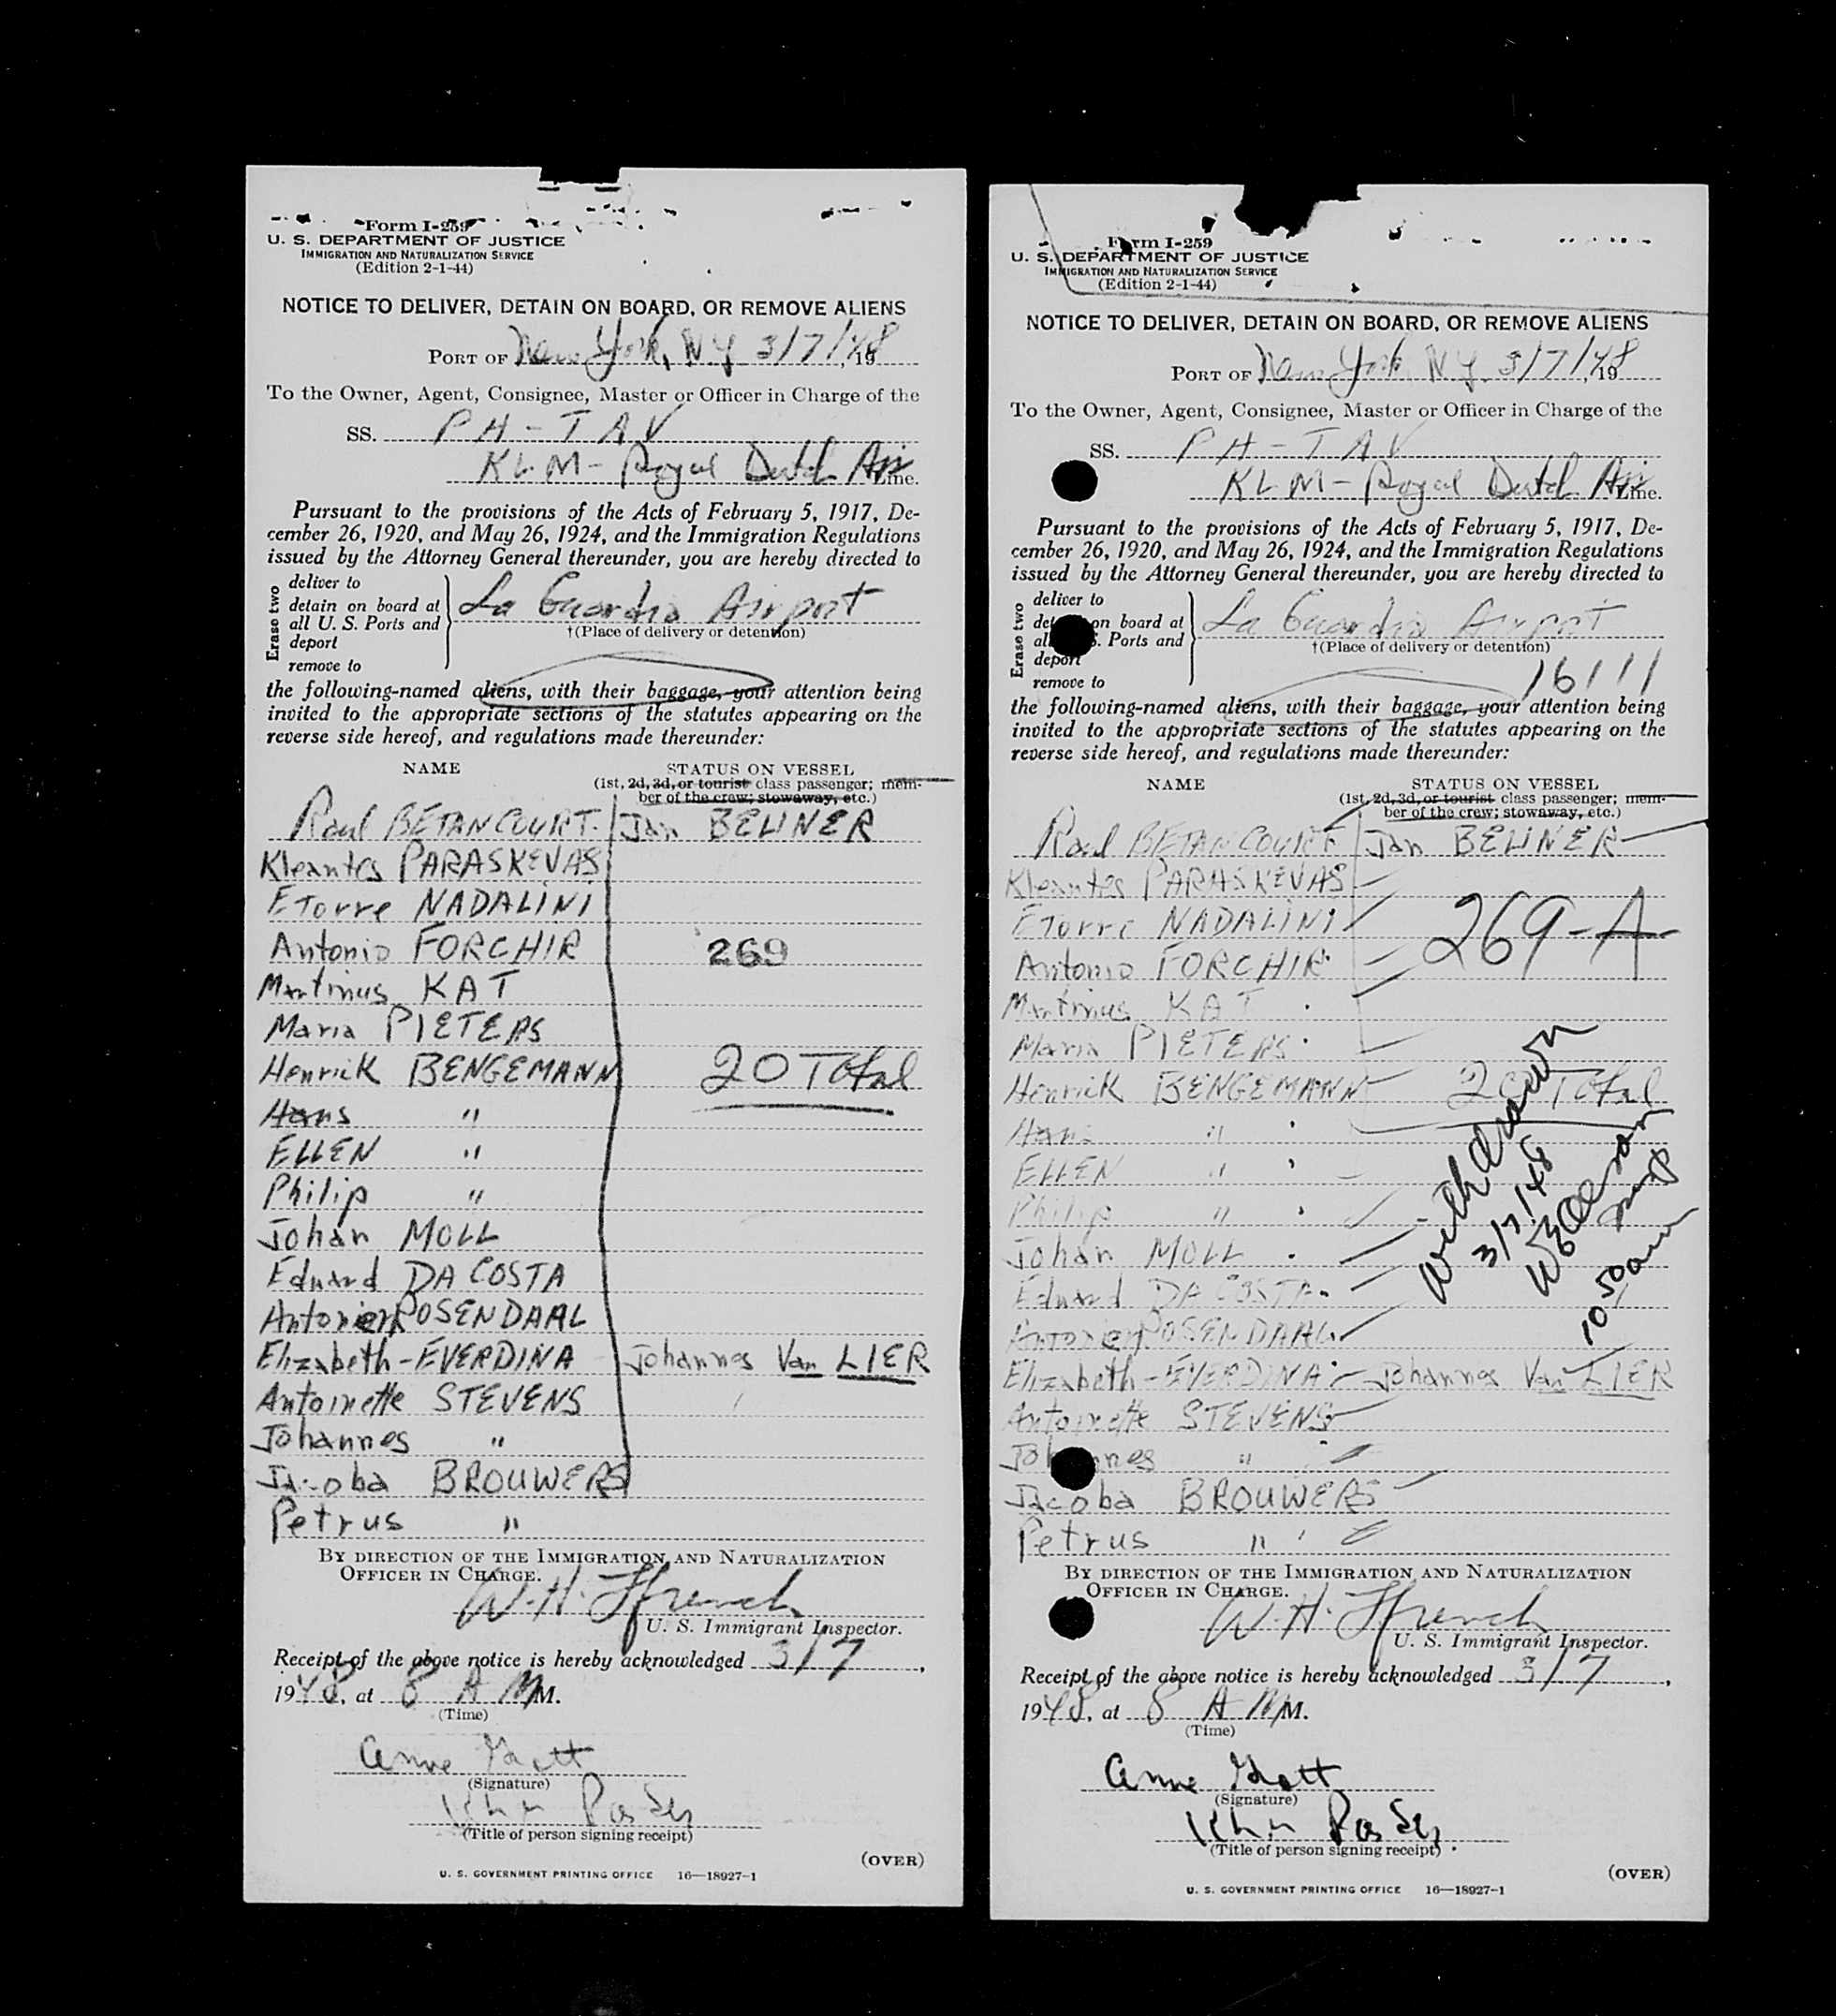 Form I-259
U. S. DEPARTMENT OF JUSTICE
IMMIGRATION AND NATURALIZATION SERVICE
(Edition 2-1-44)
NOTICE TO DELIVER, DETAIN ON BOARD, OR REMOVE ALIENS
PORT OF New York, N.Y. 3/7/48, 19
To the Owner, Agent, Consignee, Master or Officer in Charge of the
SS. PH-TAV
KLM - Royal Dutch Air Line.
Pursuant to the provisions of the Acts of February 5, 1917, De-
cember 26, 1920, and May 26, 1924, and the Immigration Regulations
issued by the Attorney General thereunder, you are hereby directed to
Erase two
deliver to
detain on board at
all U. S. Ports and
deport
remove to
La Guardia Airport
†(Place of delivery or detention)
the following-named aliens, with their baggage, your attention being
invited to the appropriate sections of the statutes appearing on the
reverse side hereof, and regulations made thereunder:
NAME STATUS ON VESSEL
(1st, 2d, 3d, or tourist class passenger; mem-
ber of the crew; stowaway, etc.)
Raul BETANCOURT. Jan BELINER
Kleantes PARASKEVAS
ETorre NADALINI
Antonio FORCHIR 269
Martinus KAT
Maria PIETERS
Henrick BENGEMANN 20 Total
Hans "
ELLEN "
Philip "
Johan MOLL
Eduard DA COSTA
ROSENDAAL
Elizabeth-EVERDINA Johannes Van LIER
Antoinette STEVENS
Johannes "
Jacoba BROUWERS
Petrus "
BY DIRECTION OF THE IMMIGRATION AND NATURALIZATION
OFFICER IN CHARGE.
W. H. Ffrench
U. S. Immigrant Inspector.
Receipt of the above notice is hereby acknowledged 3/7,
1948, at 8 A M M.
(Time)
Anne
(Signature)
(Title of person signing receipt)
(OVER)
U. S. GOVERNMENT PRINTING OFFICE 16—18927-1
Form I-259
U. S. DEPARTMENT OF JUSTICE
IMMIGRATION AND NATURALIZATION SERVICE
(Edition 2-1-44)
NOTICE TO DELIVER, DETAIN ON BOARD, OR REMOVE ALIENS
PORT OF New York, N.Y. 3/7/48, 19
To the Owner, Agent, Consignee, Master or Officer in Charge of the
SS. PH-TAV
KLM - Royal Dutch Air Line.
Pursuant to the provisions of the Acts of February 5, 1917, De-
cember 26, 1920, and May 26, 1924, and the Immigration Regulations
issued by the Attorney General thereunder, you are hereby directed to
Erase two
deliver to
detain on board at
all U. S. Ports and
deport
remove to
La Guardia Airport
†(Place of delivery or detention)
16111
the following-named aliens, with their baggage, your attention being
invited to the appropriate sections of the statutes appearing on the
reverse side hereof, and regulations made thereunder:
NAME STATUS ON VESSEL
(1st, 2d, 3d, or tourist class passenger; mem-
ber of the crew; stowaway, etc.)
Raul BETANCOURT Jan BELINER
Kleantes PARASKEVAS
ETorre NADALINI
Antonio FORCHIR 269-A
Martinus KAT
Maria PIETERS
Henrick BENGEMANN 20 Total
Hans "
ELLEN "
Philip "
Johan MOLL
Eduard DA COSTA
ROSENDAAL
Withdrawn
3/7/48
10 50 am
Elizabeth-EVERDINA Johannes Van LIER
Antoinette STEVENS
Johannes "
Jacoba BROUWERS
Petrus "
BY DIRECTION OF THE IMMIGRATION AND NATURALIZATION
OFFICER IN CHARGE.
W. H. Ffrench
U. S. Immigrant Inspector.
Receipt of the above notice is hereby acknowledged 3/7,
1948, at 8 A M M.
(Time)
Anne
(Signature)
(Title of person signing receipt)
(OVER)
U. S. GOVERNMENT PRINTING OFFICE 16—18927-1